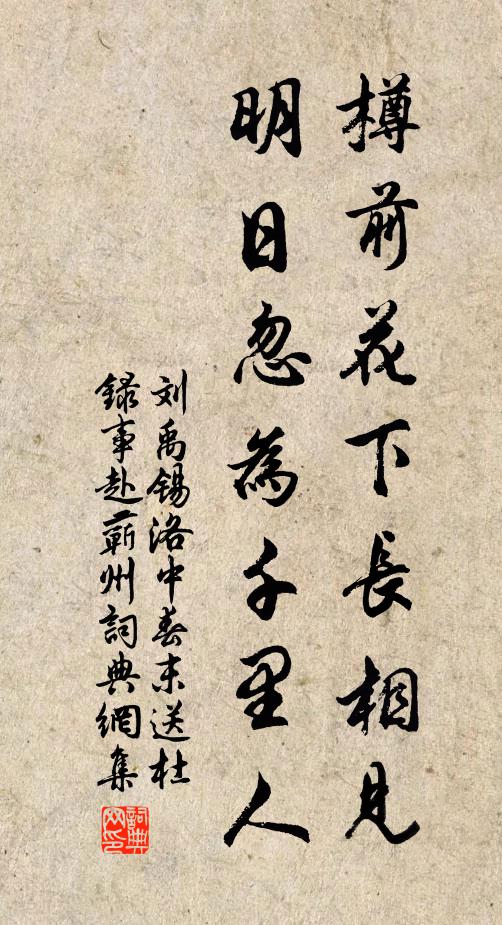 樽前花下長相見
明日忽為千里人
刘禹锡洛中春末送杜
録事赴蕲州詞典網集
詞典网印